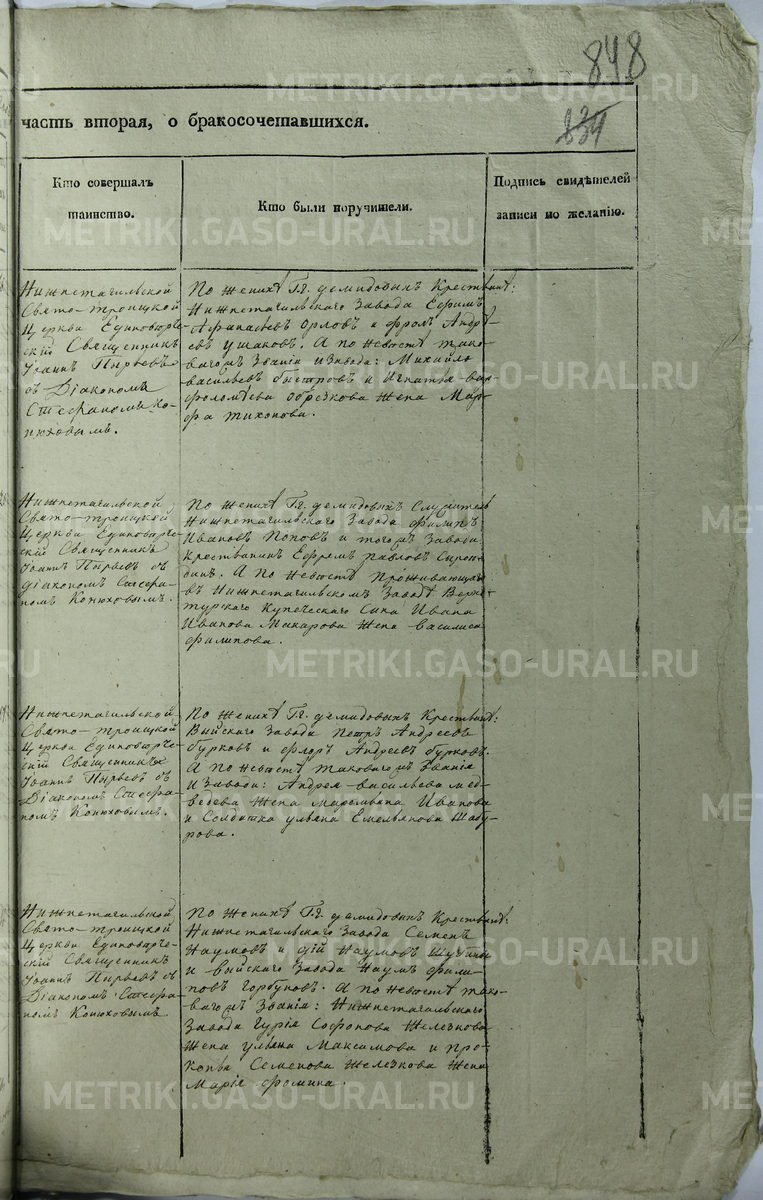 848
834
часть вторая, о бракосочетавшихся.
Кто совершалъ
таинство.
Кто были поручители.
Подпись свидѣтелей
записи по желанію.
Нижнетагильской
Свято-троицкой
Церкви Единовѣрче-
скій Священникъ
Іоаннъ Пырьевъ
съ Діакономъ
Стефаномъ Ко-
нюховымъ.
По женихѣ Гг. демидовыхъ Крестьянѣ:
Нижнетагильскаго Завода Ефимъ
Афанасьевъ Орловъ и фролъ Андрѣ-
евъ ушаковъ. А по невѣстѣ тако-
вагожъ Званія и завода: Михайло
васильевъ быстровъ и Игнатья вар-
фоломѣева Обрѣзкова жена Мар-
фа тихонова.
Нижнетагильской
Свято-троицкой
Церкви Единовѣрче-
скій Священникъ
Іоаннъ Пырьевъ съ
діакономъ Стефа-
номъ Конюховымъ.
По женихѣ Гг. демидовыхъ Служитель
Нижнетагильскаго Завода филипъ
Ивановъ Поповъ и тогожъ Завода
крестьянинъ Ефремъ павловъ
А по невѣстѣ Проживающаго
въ Нижнетагильскомъ Заводѣ Верхо-
турскаго Купеческаго Сына Ивана
Иванова Макарова жена василиса
филипова.
Нижнетагильской
Свято-троицкой
Церкви Единовѣрче-
скій Священникъ
Іоаннъ Пырьевъ съ
Діакономъ Стефа-
номъ Конюховымъ.
По женихѣ Гг. демидовыхъ Крестьянѣ:
Выйскаго Завода Петръ Андреевъ
бурковъ и флоръ Андреевъ бурковъ.
А по невѣстѣ таковагожъ Званія
и Завода: Андрея васильева мед-
ведева жена Маремьяна Иванова
и Солдатка ульяна Емельянова Шабу-
рова.
Нижнетагильской
Свято-троицкой
Церкви Единовѣрче-
скій Священникъ
Іоаннъ Пырьевъ съ
Діакономъ Стефа-
номъ Конюховымъ
По женихѣ Гг. демидовыхъ Крестьянѣ:
Нижнетагильскаго Завода Семенъ
Наумовъ и Наумовъ
и выйскаго Завода Наумъ фили-
повъ Горбуновъ. А по невѣстѣ тако-
вагожъ Званія: Нижнетагильскаго
Завода Гурія Софонова Железкова
жена ульяна Максимова и Про-
копья Семенова железкова жена
Марія фомина.
METRIKI.GASO-URAL.RU